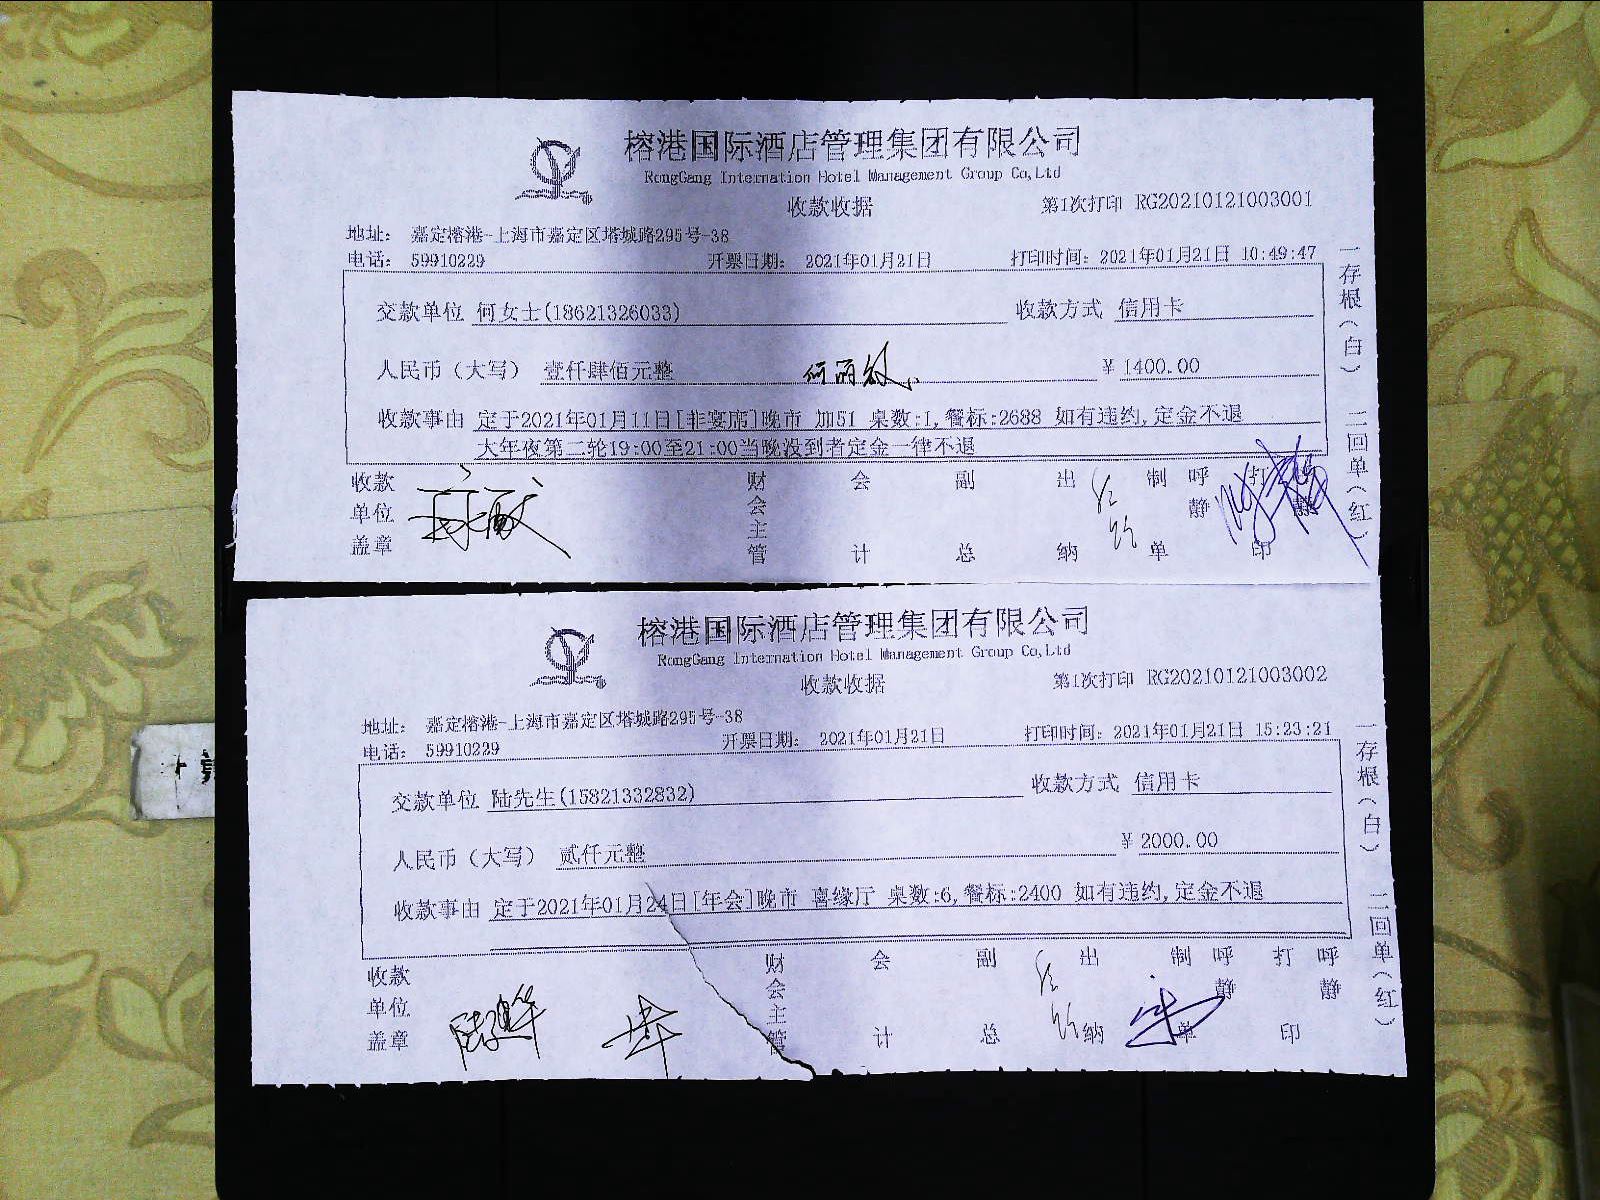 榕港国际酒店管理集团有限公司
RongGang Internation Hotel Management Group Co,Ltd
收款收据
第1次打印 RG20210121003001
地址： 嘉定榕港-上海市嘉定区塔城路295号-38
电话： 59910229 开票日期： 2021年01月21日 打印时间：2021年01月21日 10:49:47
交款单位 何女士(18621326033) 收款方式 信用卡
人民币（大写） 壹仟肆佰元整 ￥1400.00
收款事由 定于2021年01月11日[非宴席]晚市 加51 桌数:1,餐标:2688 如有违约,定金不退
大年夜第二轮19:00至21:00当晚没到者定金一律不退
收款单位盖章 财会主管 会计 副总 出纳 制单 呼静 打印 静
一存根（白） 二回单（红）
榕港国际酒店管理集团有限公司
RongGang Internation Hotel Management Group Co,Ltd
收款收据
第1次打印 RG20210121003002
地址： 嘉定榕港-上海市嘉定区塔城路295号-38
电话： 59910229 开票日期： 2021年01月21日 打印时间：2021年01月21日 15:23:21
交款单位 陆先生(15821332832) 收款方式 信用卡
人民币（大写） 贰仟元整 ￥2000.00
收款事由 定于2021年01月24日[年会]晚市 喜缘厅 桌数:6,餐标:2400 如有违约,定金不退
收款单位盖章 财会主管 会计 副总 出纳 制单 呼静 打印 呼静
一存根（白） 二回单（红）